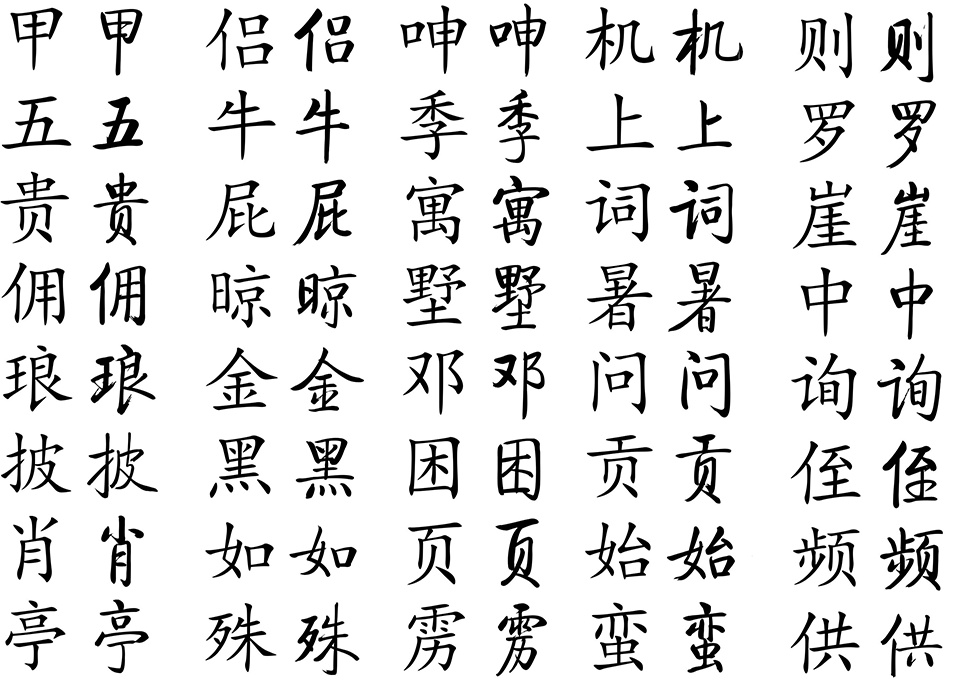 甲甲 侣侣 呻呻 机机 则则
五五 牛牛 季季 上上 罗罗
贵贵 屁屁 寓寓 词词 崖崖
佣佣 晾晾 墅墅 暑暑 中中
琅琅 金金 邓邓 问问 询询
披披 黑黑 困困 贡贡 侄侄
肖肖 如如 页页 始始 频频
亭亭 殊殊 雳雳 蛮蛮 供供